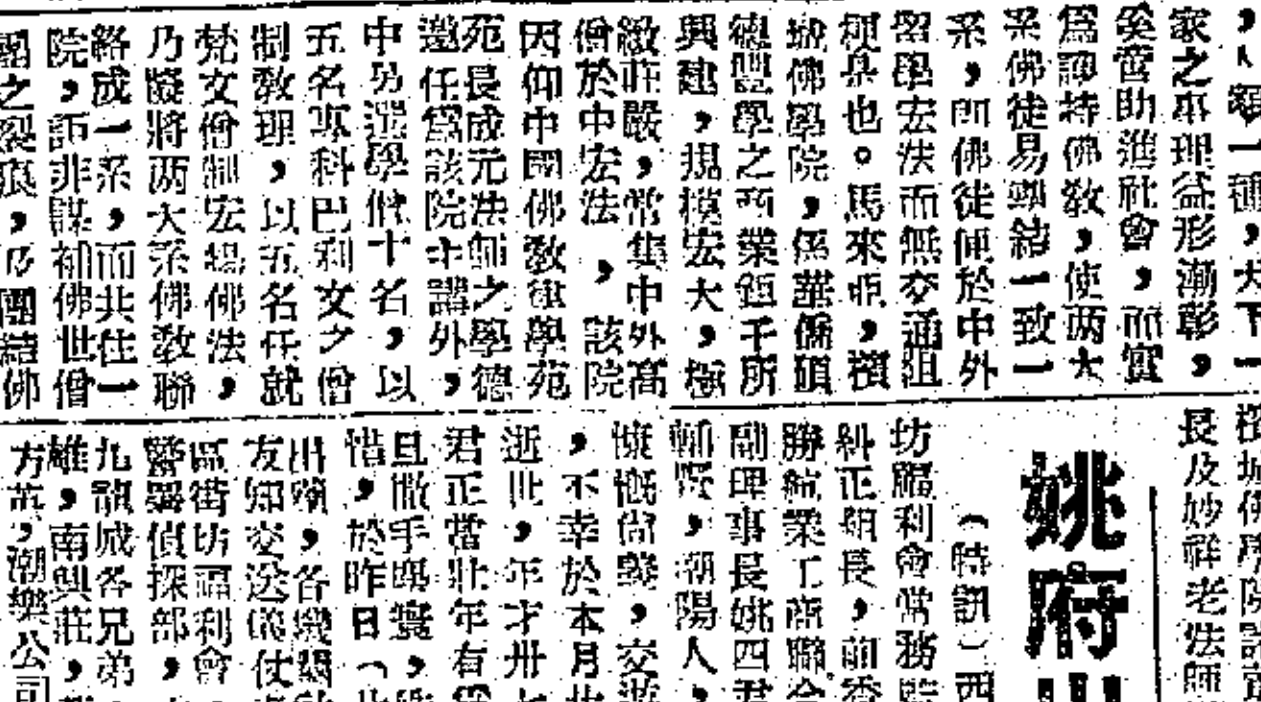 ，人類一種，天下一
家之事理益形漸彰，
奚啻助進社會，而實
為護持佛教，使两大
系佛徒易與結一致一
系，即佛徒便於中外
留學宏法而無交通阻
梗是也。馬來亞，檳
城佛學院，係華僑碩
德豐學之商業鉅子所
興建，規模宏大，極
緻莊嚴，常集中外高
僧於中宏法，該院
因仰中國佛教律學苑
苑長成元法師之學德
邀任為該院主講外，
中另選學僧十名，以
五名專科巴利文之僧
制教理，以五名任就
梵文僧制宏揚佛法，
乃擬將两大系佛教聯
絡成一系，而共住一
院，詎非謀補佛世僧
團之裂痕，乃團結佛
檳城佛學院諸董
長及妙祥老法師
姚府
（時訊）西
坊福利會常務監
糾正組長，前香
勝統業工商聯合
副理事長姚四君
輔賢，潮陽人，
慷慨尚義，交遊
，不幸於本月
逝世，年才卅
君正當壯年有
旦撒手塵寰，
惜，於昨日（
出殯，各機關
友知交送殯儀仗
區街坊福利會
警署偵探部，
九龍城各兄弟
雄，南興莊，
方英，潮樂公司